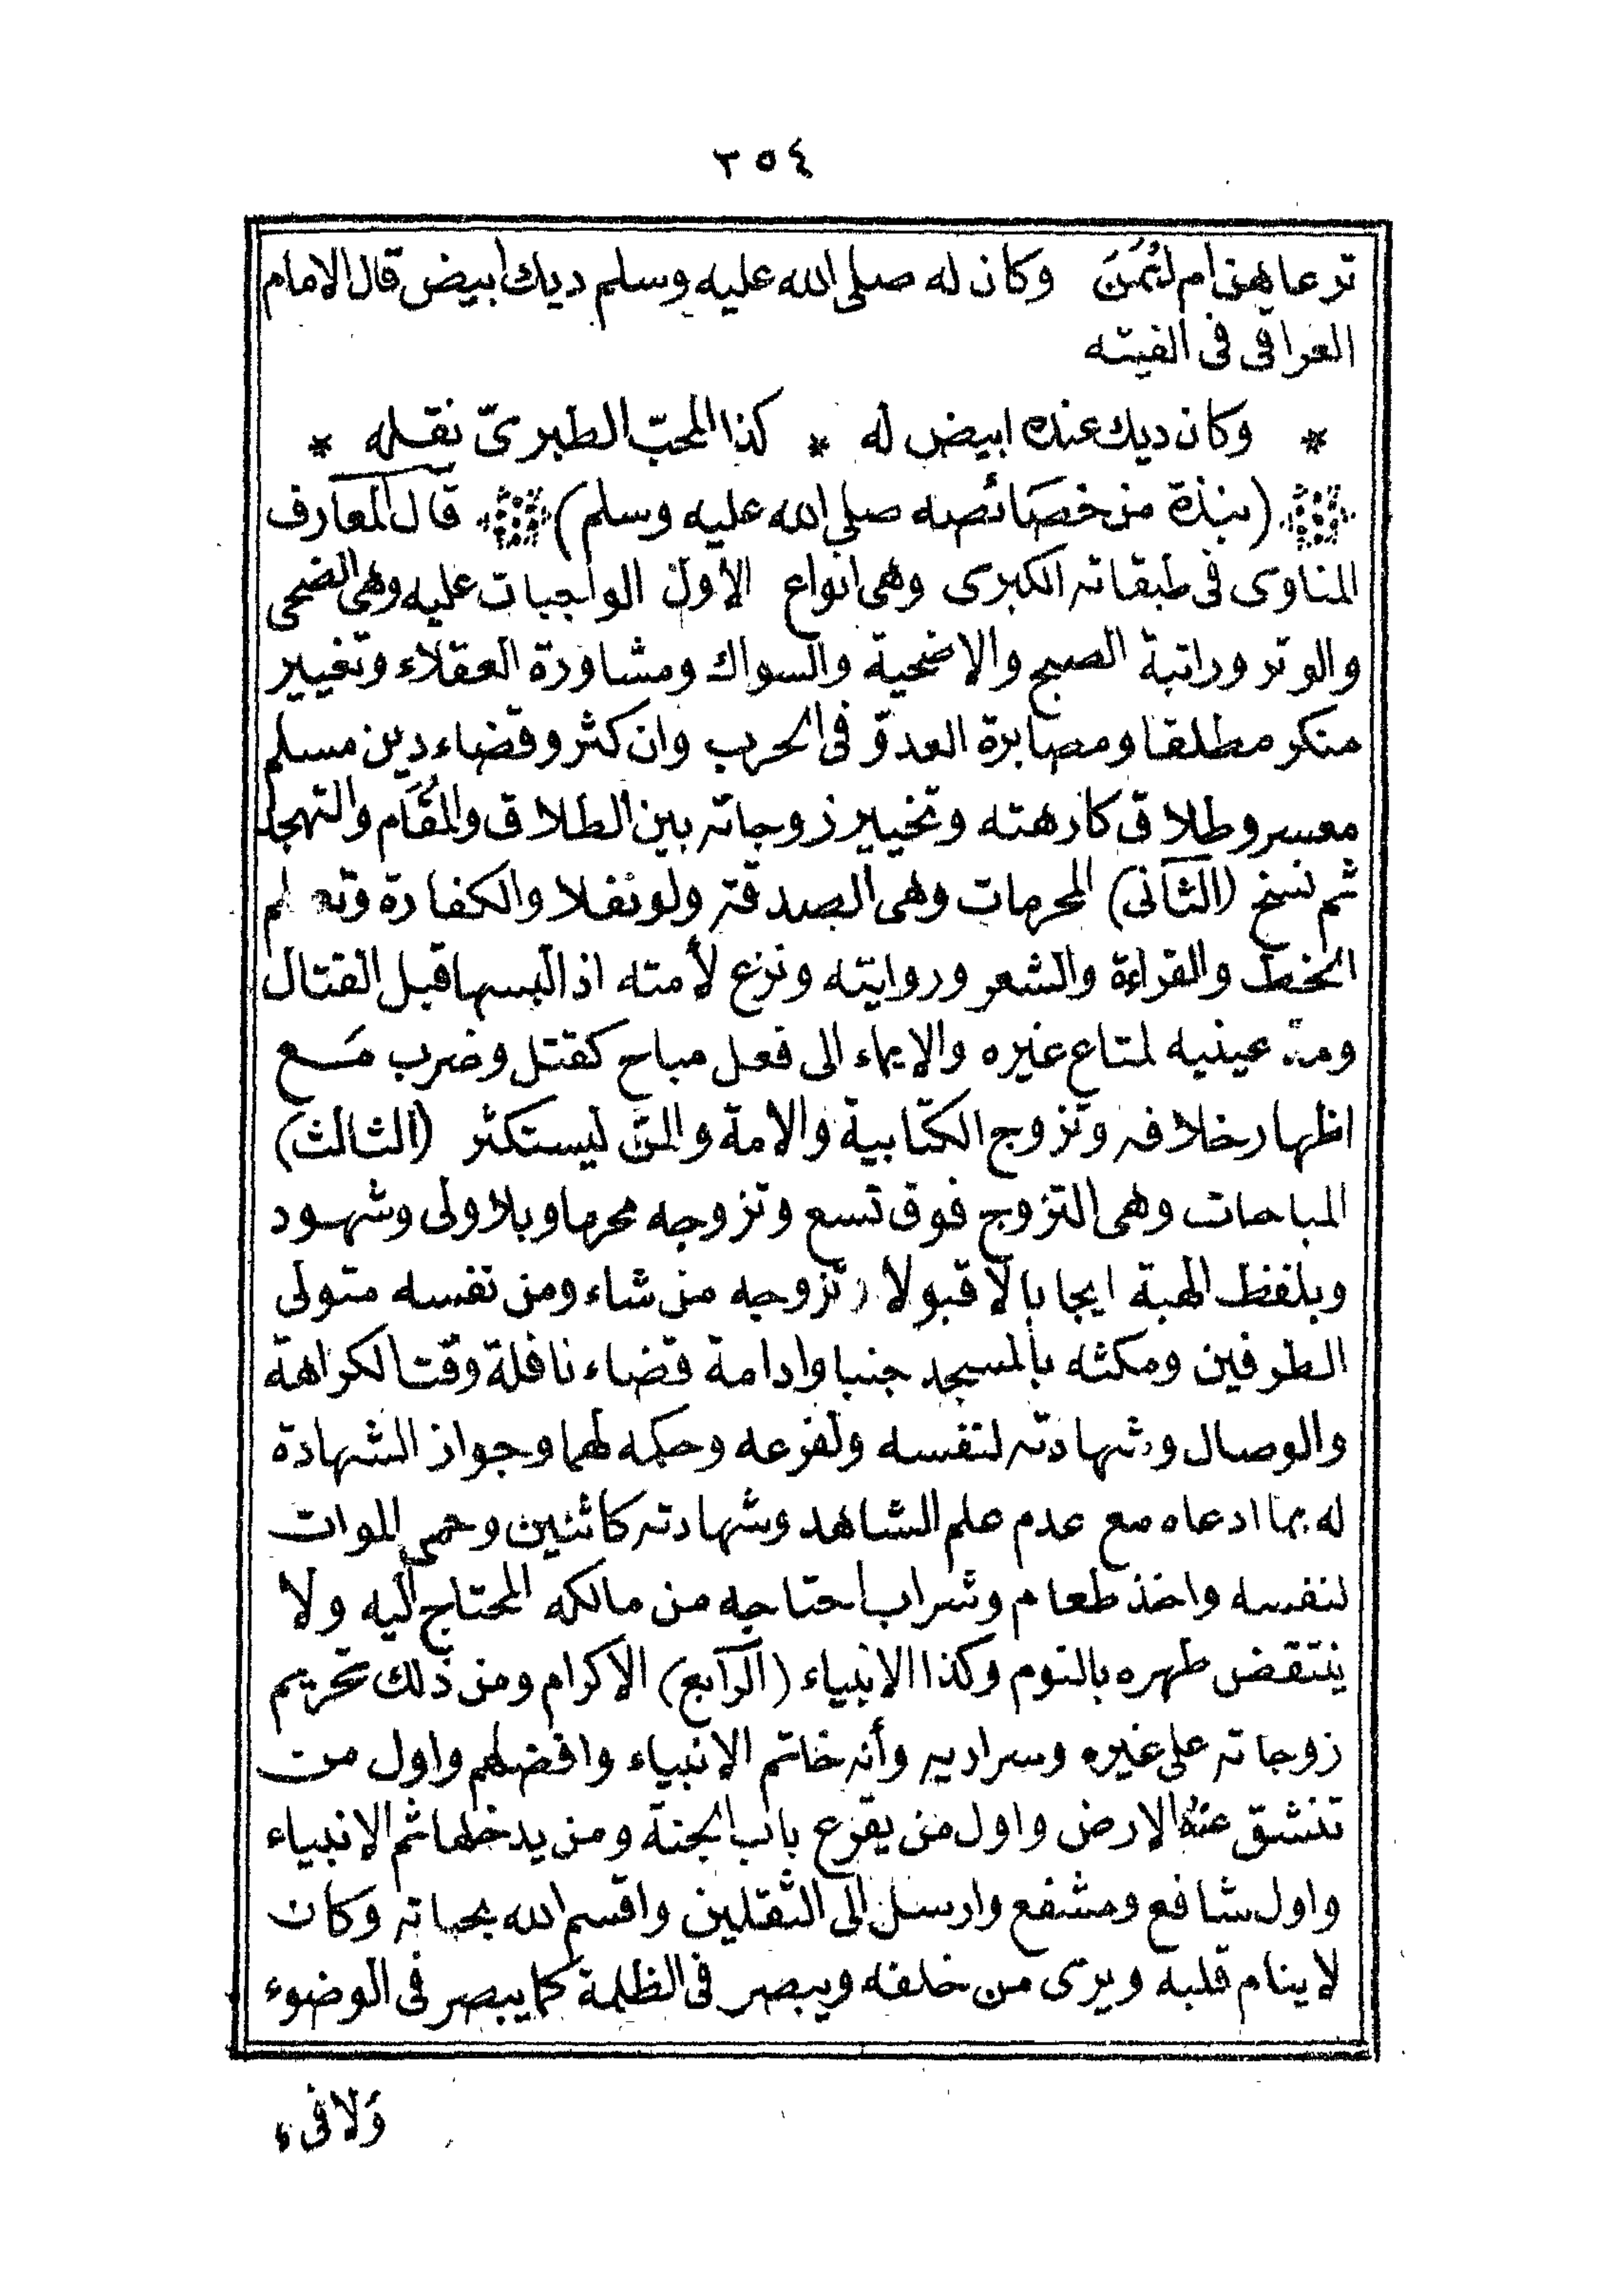 ٢٥٤
ترعاهن ام ايمن وكان له صلى الله عليه وسلم ديك ابيض قال الامام
العراقى فى الفيته
* وكان ديك عنده ابيض له * كذا المحبّ الطبرىّ نقله *
(نبذة من خصائصه صلى الله عليه وسلم) قال العارف
المناوى فى طبقاته الكبرى وهى انواع الاول الواجبات عليه وهى الضحى
والوتر وراتبة الصبح والاضحية والسواك ومشاورة العقلاء وتغيير
منكر مطلقا ومصابرة العدوّ فى الحرب وان كثر وقضاء دين مسلم
معسر وطلاق كارهته وتخيير زوجاته بين الطلاق والمُقَام والتهجد
ثم نسخ (الثانى) المحرمات وهى الصدقة ولو نفلا والكفارة وتعلم
الخط والقراءة والشعر وروايته ونزع لأمته اذا لبسها قبل القتال
ومدّ عينيه لمتاع غيره والايماء الى فعل مباح كقتل وضرب مَع
اظهار خلافه وتزوج الكتابية والامة والمنّ ليستكثر (الثالث)
المباحات وهى التزوج فوق تسع وتزوجه محرما وبلا ولى وشهود
وبلفظ الهبة ايجابا لا قبولا وتزوجه من شاء ومن نفسه متولى
الطرفين ومكثه بالمسجد جنبا وادامة قضاء نافلة وقت الكراهة
والوصال وشهادته لنفسه ولفرعه وحكمه لهما وجواز الشهادة
له بما ادعاه مع عدم علم الشاهد وشهادته كاثنين وحمى الموات
لنفسه واخذ طعام وشراب احتاجه من مالكه المحتاج اليه ولا
ينتقض طهره بالنوم وكذا الانبياء (الرابع) الاكرام ومن ذلك تحريم
زوجاته على غيره وسراريه وأنه خاتم الانبياء وافضلهم واول من
تنشق عنه الارض واول من يقرع باب الجنة ومن يدخلها ثم الانبياء
واول شافع ومشفع وارسل الى الثقلين واقسم الله بحياته وكان
لا ينام قلبه ويرى من خلفه ويبصر فى الظلمة كما يبصر فى الوضوء
وَلا فى